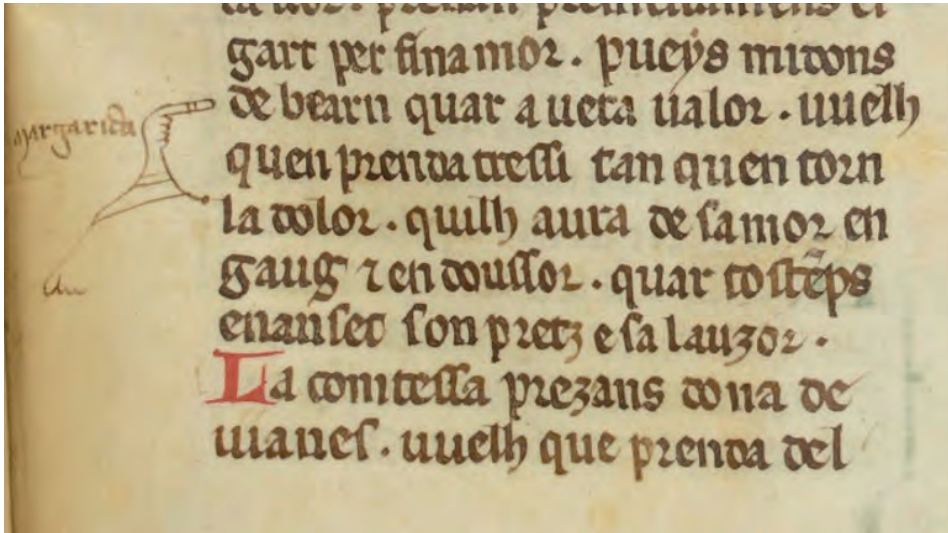 gart per fina mor. pueys midons
Margarida
de bearn quar a ueta ualor. uuelh
quen prenda tressi tan quen torn
la dolor. quilh aura de samor en
gaug ⁊ en doussor. quar tostẽps
enansec son pretz e sa lauzor.
La comtessa prezans dona de
uianes. uuelh que prenda del